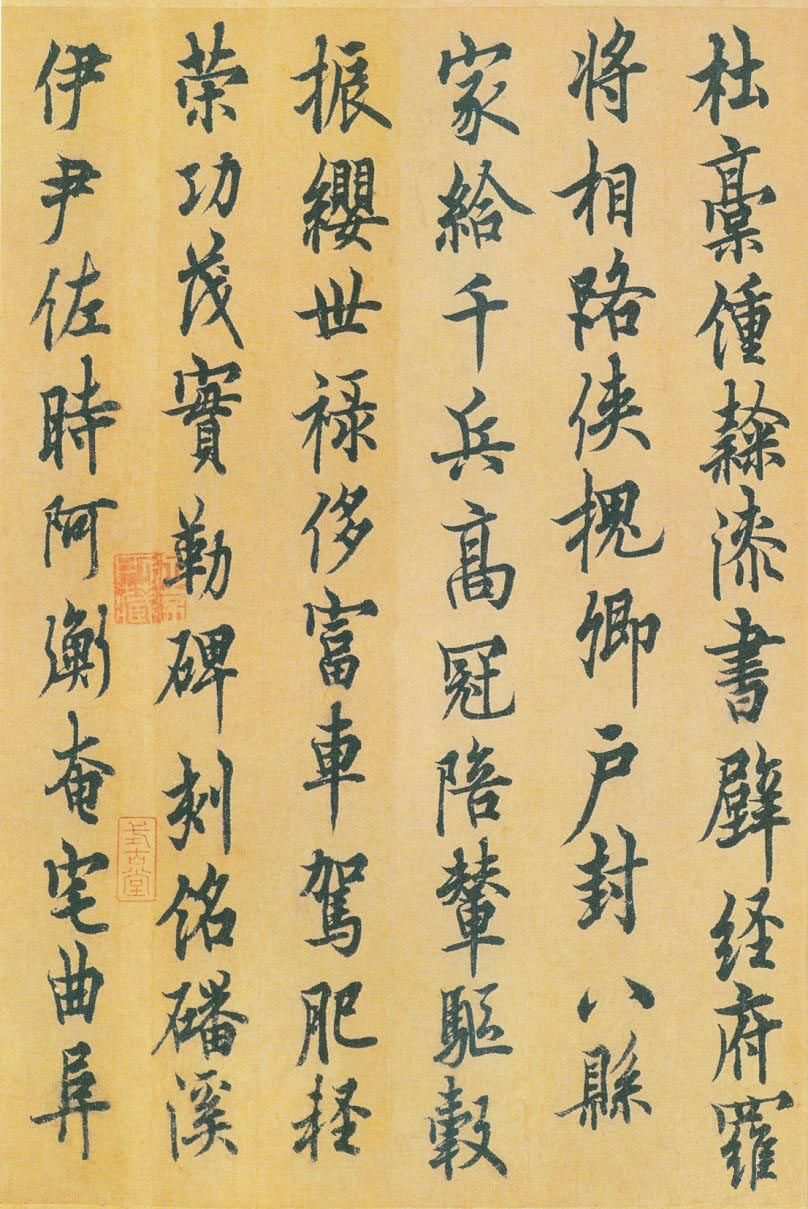 杜稾鍾隸漆書壁経府羅
将相路俠槐卿户封八縣
家給千兵高冠陪輦驅轂
振纓世禄侈富車駕肥軽
荣功茂實勒碑刻銘磻溪
伊尹佐時阿衡奄宅曲阜
式古堂